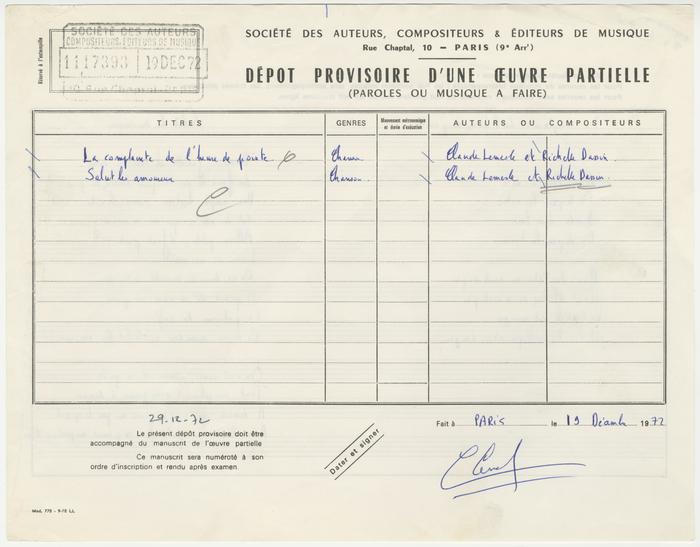 SOCIÉTÉ DES AUTEURS
COMPOSITEURS, ÉDITEURS DE MUSIQUE
1117393 19 DEC 72
10 Rue Chaptal - PARIS
Réservé à l'estampille
SOCIÉTÉ DES AUTEURS, COMPOSITEURS & ÉDITEURS DE MUSIQUE
Rue Chaptal, 10 — PARIS (9e Arrt)
DÉPOT PROVISOIRE D'UNE ŒUVRE PARTIELLE
(PAROLES OU MUSIQUE A FAIRE)
TITRES GENRES Mouvement métronomique et durée d'exécution AUTEURS OU COMPOSITEURS
La complainte de l'heure de pointe Chanson Claude Lemesle et Richelle Dassin
Salut les amoureux Chanson Claude Lemesle et Richelle Dassin
29-12-72
Le présent dépôt provisoire doit être
accompagné du manuscrit de l'œuvre partielle
Ce manuscrit sera numéroté à son
ordre d'inscription et rendu après examen
Dater et signer
Fait à PARIS le 19 Décembre 1972
Mod. 775 - 9-70 LL